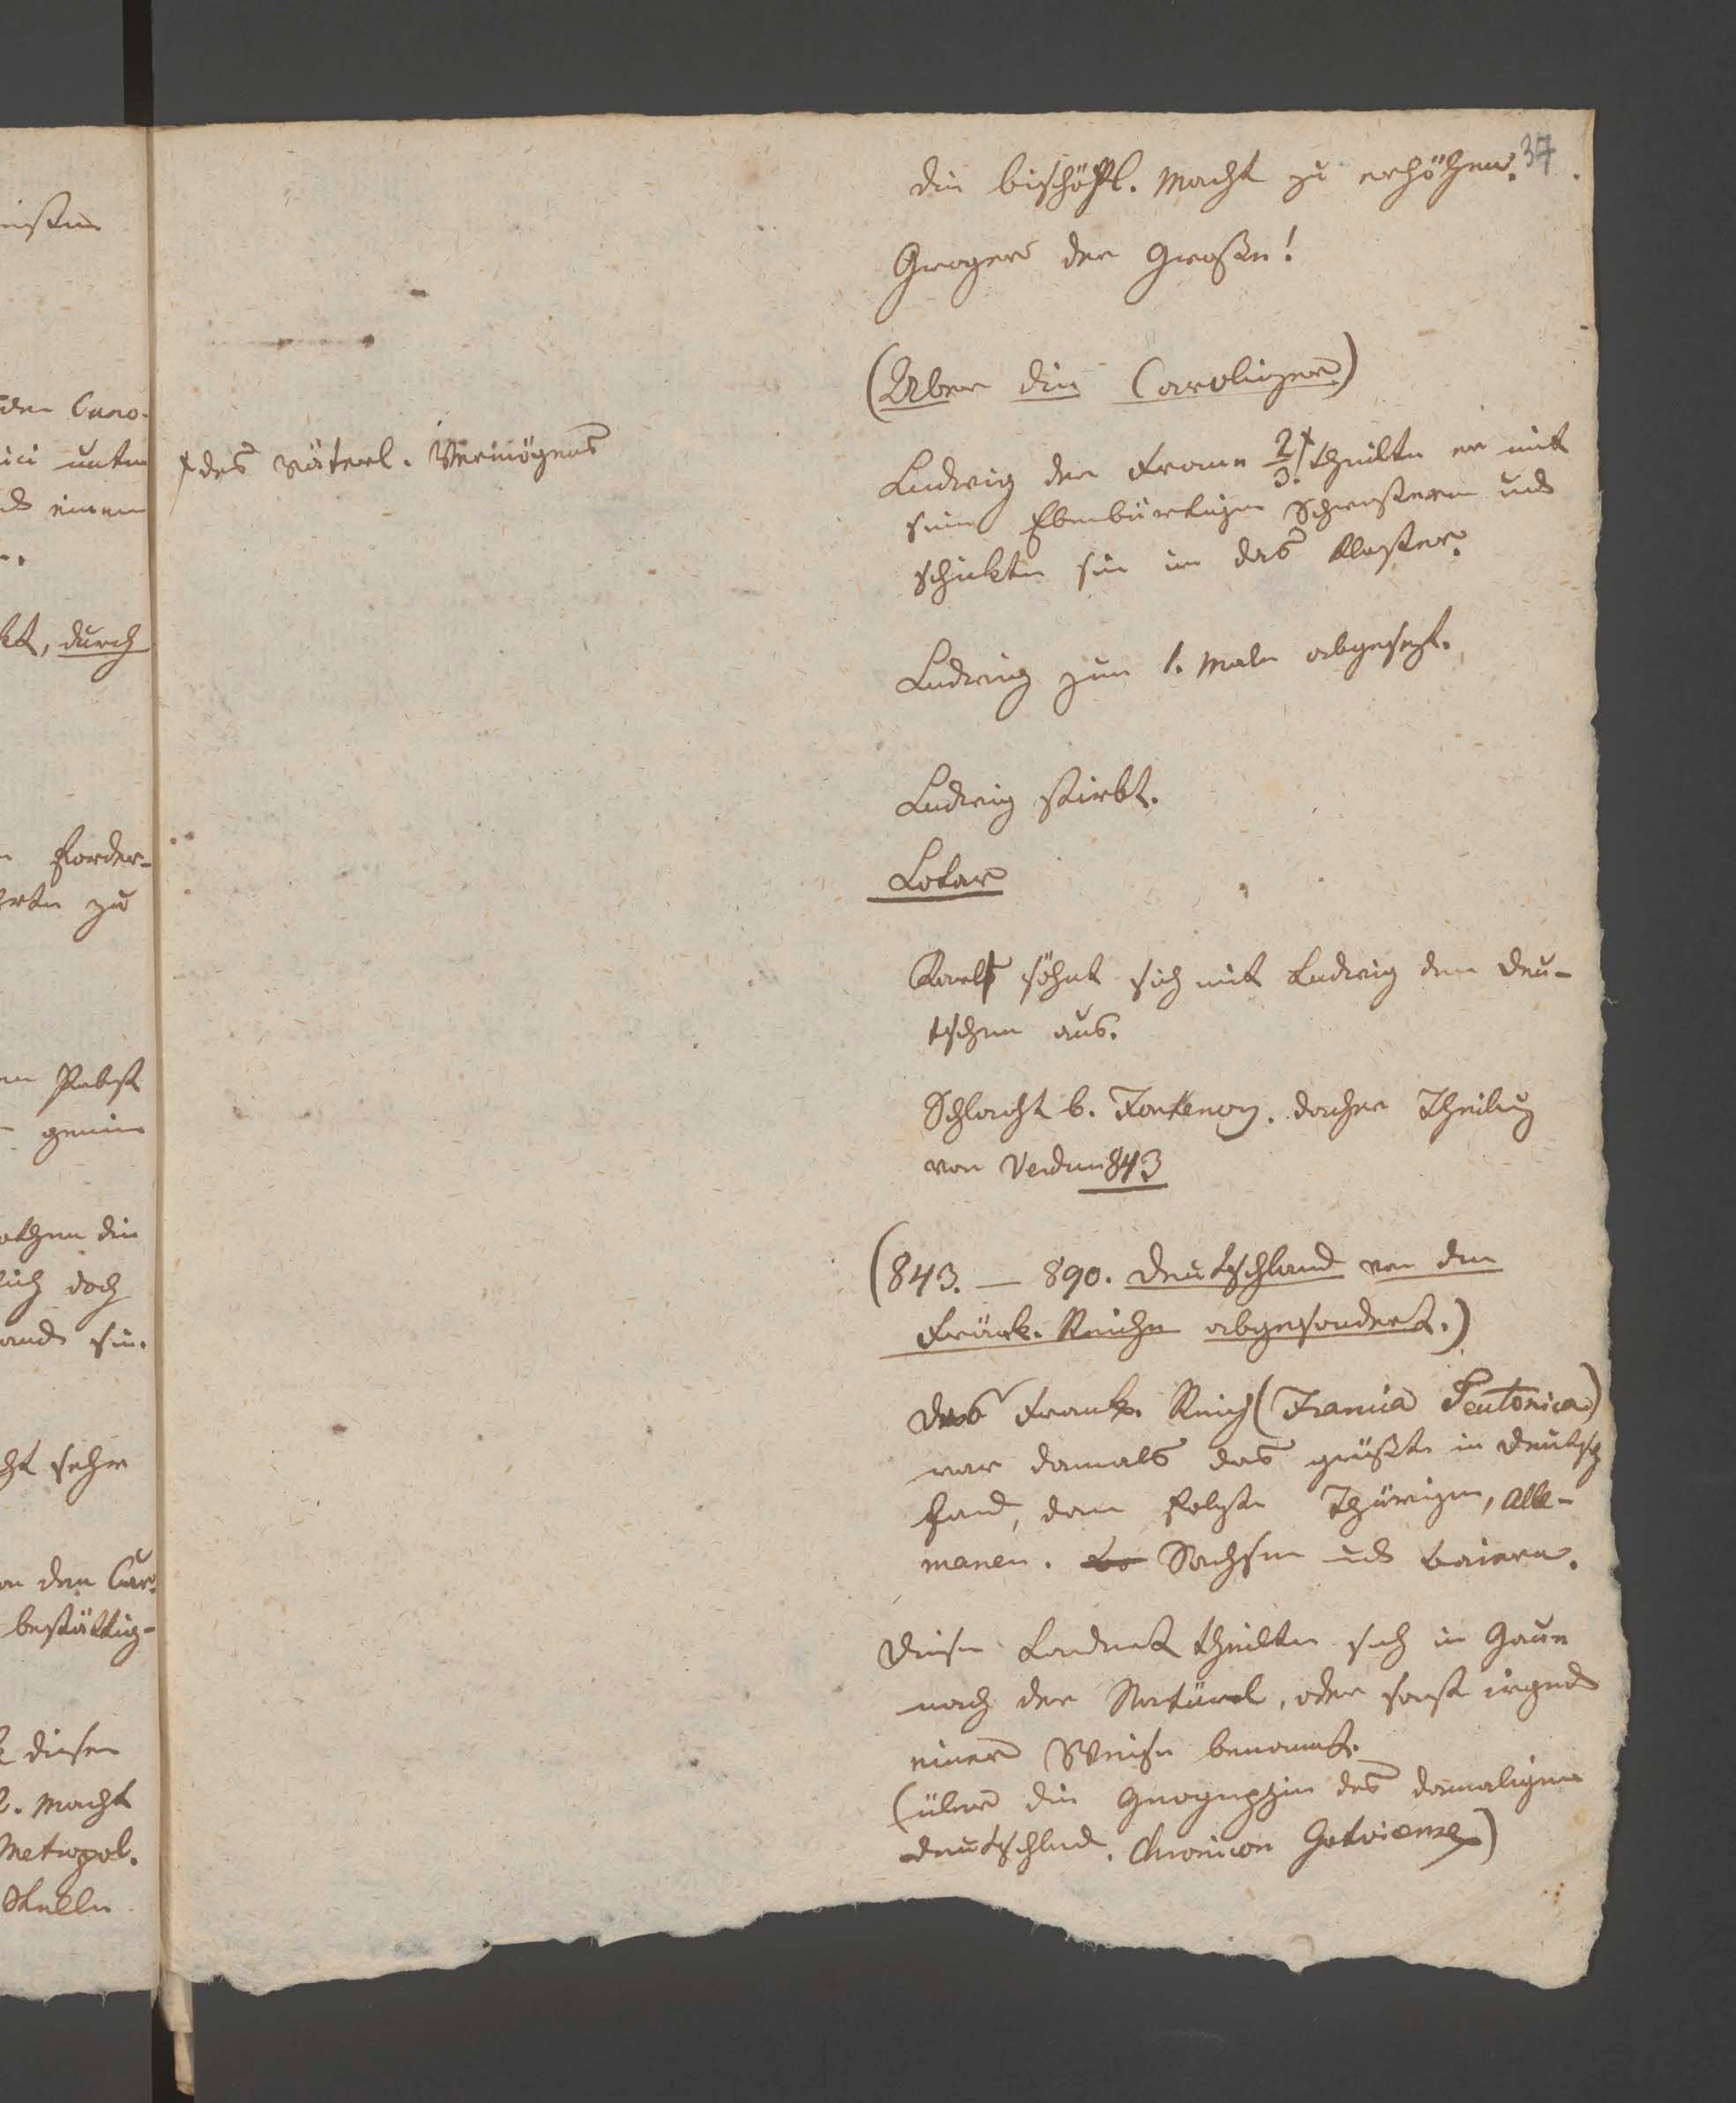 37
die bischöfl. Macht zu erhöhen.
Gregor der Große!
(Über die Carolinger)
+ des väterl. Vermögens
Ludwig der Fromme 2/3 + theilte er mit
seine Ebenbürtigen Schwestern und
schickte sie in das Kloster.
Ludwig zum 1. Male abgesetzt.
Ludwig stirbt.
Lotar
Karl söhnt sich mit Ludwig dem Deu-
tschen aus.
Schlacht b. Fontenoy. daher Theilung
von Verdun 843
(843. — 890. Deutschland von dem
Fränk. Reiche abgesondert.)
Das Frank. Reich (Francia Teutonica)
war damals das größte in Deutsch
land, dann folgte Thüringen, Alle-
manen. Sachsen und Baiern.
Diese theilten sich in Gaue
nach der Natur, oder sonst irgend
einer Weise benannt.
(über die Geographie des damaligen
Deutschland. Chronicon Gotvicense)
den Cano-
ici unter
einem
durch
Forder-
zu
Pabst
die
doch
sie.
sehr
den Cur
bestättig-
diesen
Macht
Metropol.
Stelle